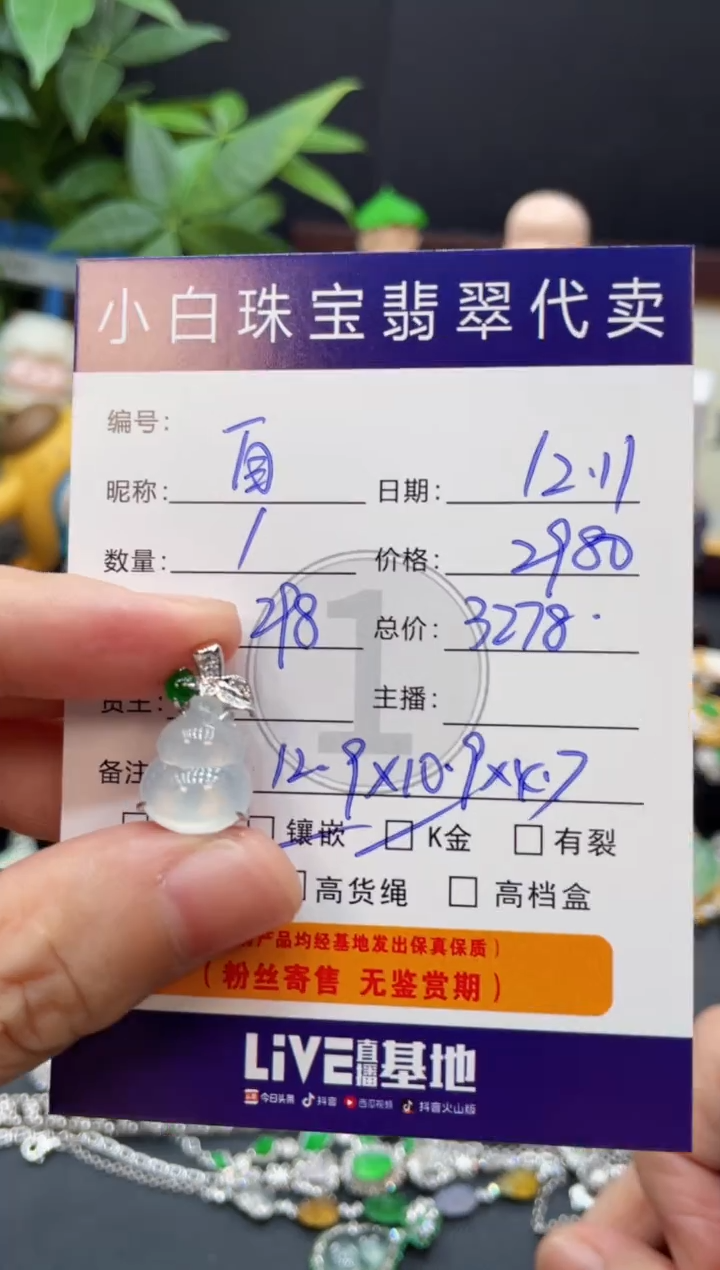 小白珠宝翡翠代卖
编号:
昵称: 百 日期: 12.11
数量: 1 价格: 2980
298 总价: 3278.
货主: 主播:
备注 12.9×10.9×4.7
镶嵌 K金 有裂
高货绳 高档盒
产品均经基地发出保真保质)
(粉丝寄售 无鉴赏期)
LiVE直播基地
今日头条 抖音 西瓜视频 抖音火山版